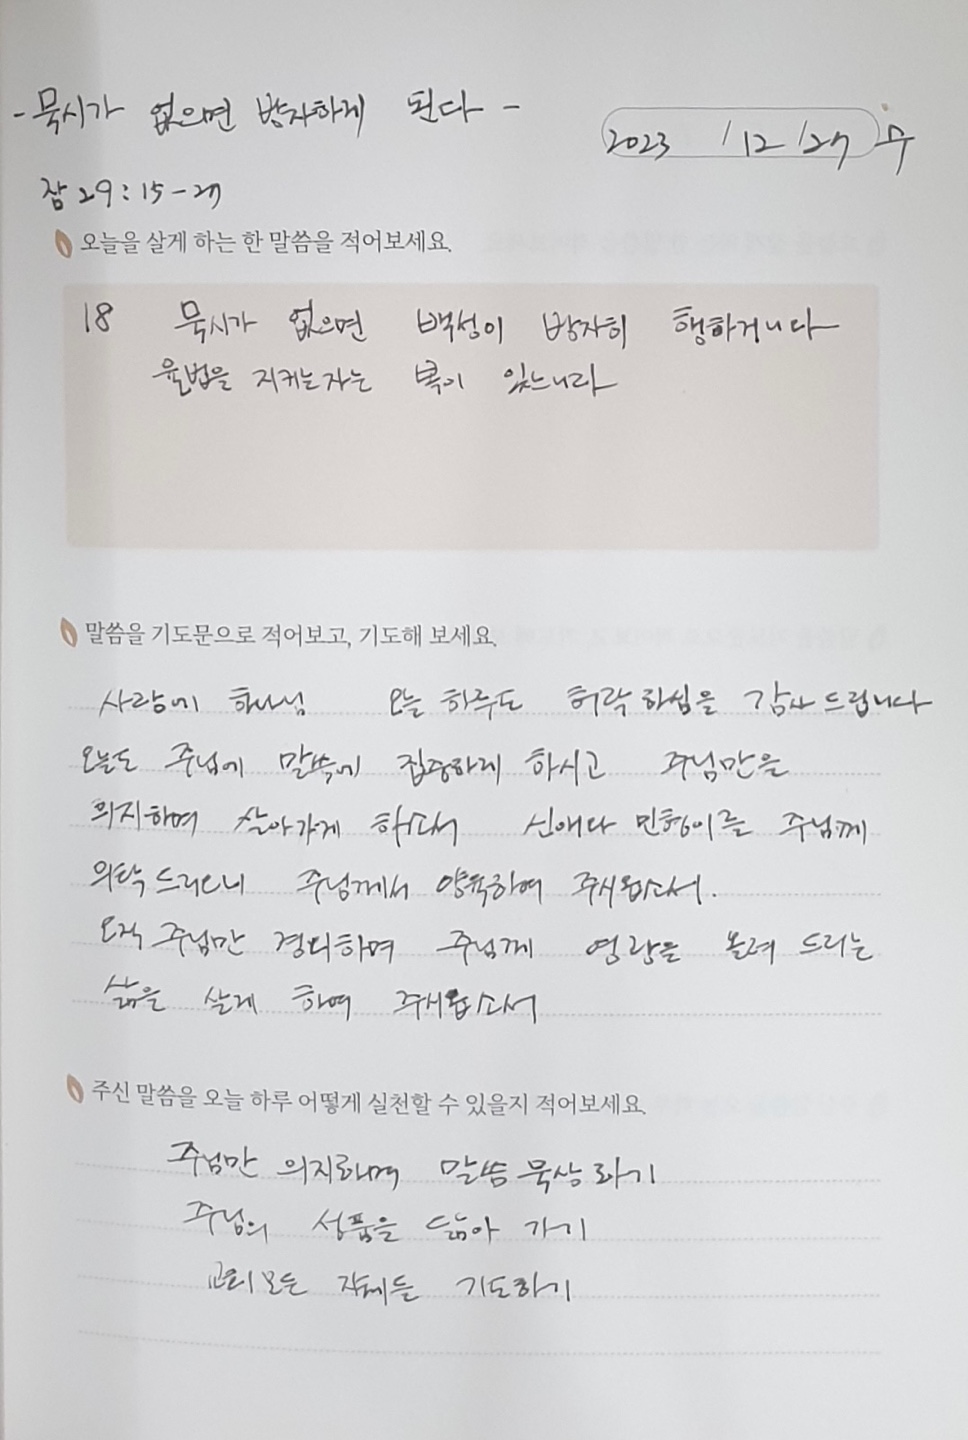 - 묵시가 없으면 방자하게 된다 -
2023 / 12 / 27 수
잠 29 : 15 - 27
오늘을 살게 하는 한 말씀을 적어보세요.
18 묵시가 없으면 백성이 방자히 행하거니와
율법을 지키는자는 복이 있느니라
말씀을 기도문으로 적어보고, 기도해 보세요.
사랑에 하나님 오늘 하루도 허락하심을 감사드립니다
오늘도 주님에 말씀에 집중하게 하시고 주님만을
의지하며 살아가게 하소서 신애와 민형이를 주님께
의탁드리오니 주님께서 양육하여 주시옵소서.
오직 주님만 경외하며 주님께 영광을 올려 드리는
삶을 살게 하여 주시옵소서
주신 말씀을 오늘 하루 어떻게 실천할 수 있을지 적어보세요.
주님만 의지하며 말씀 묵상하기
주님의 성품을 닮아 가기
교회 모든 지체들 기도하기